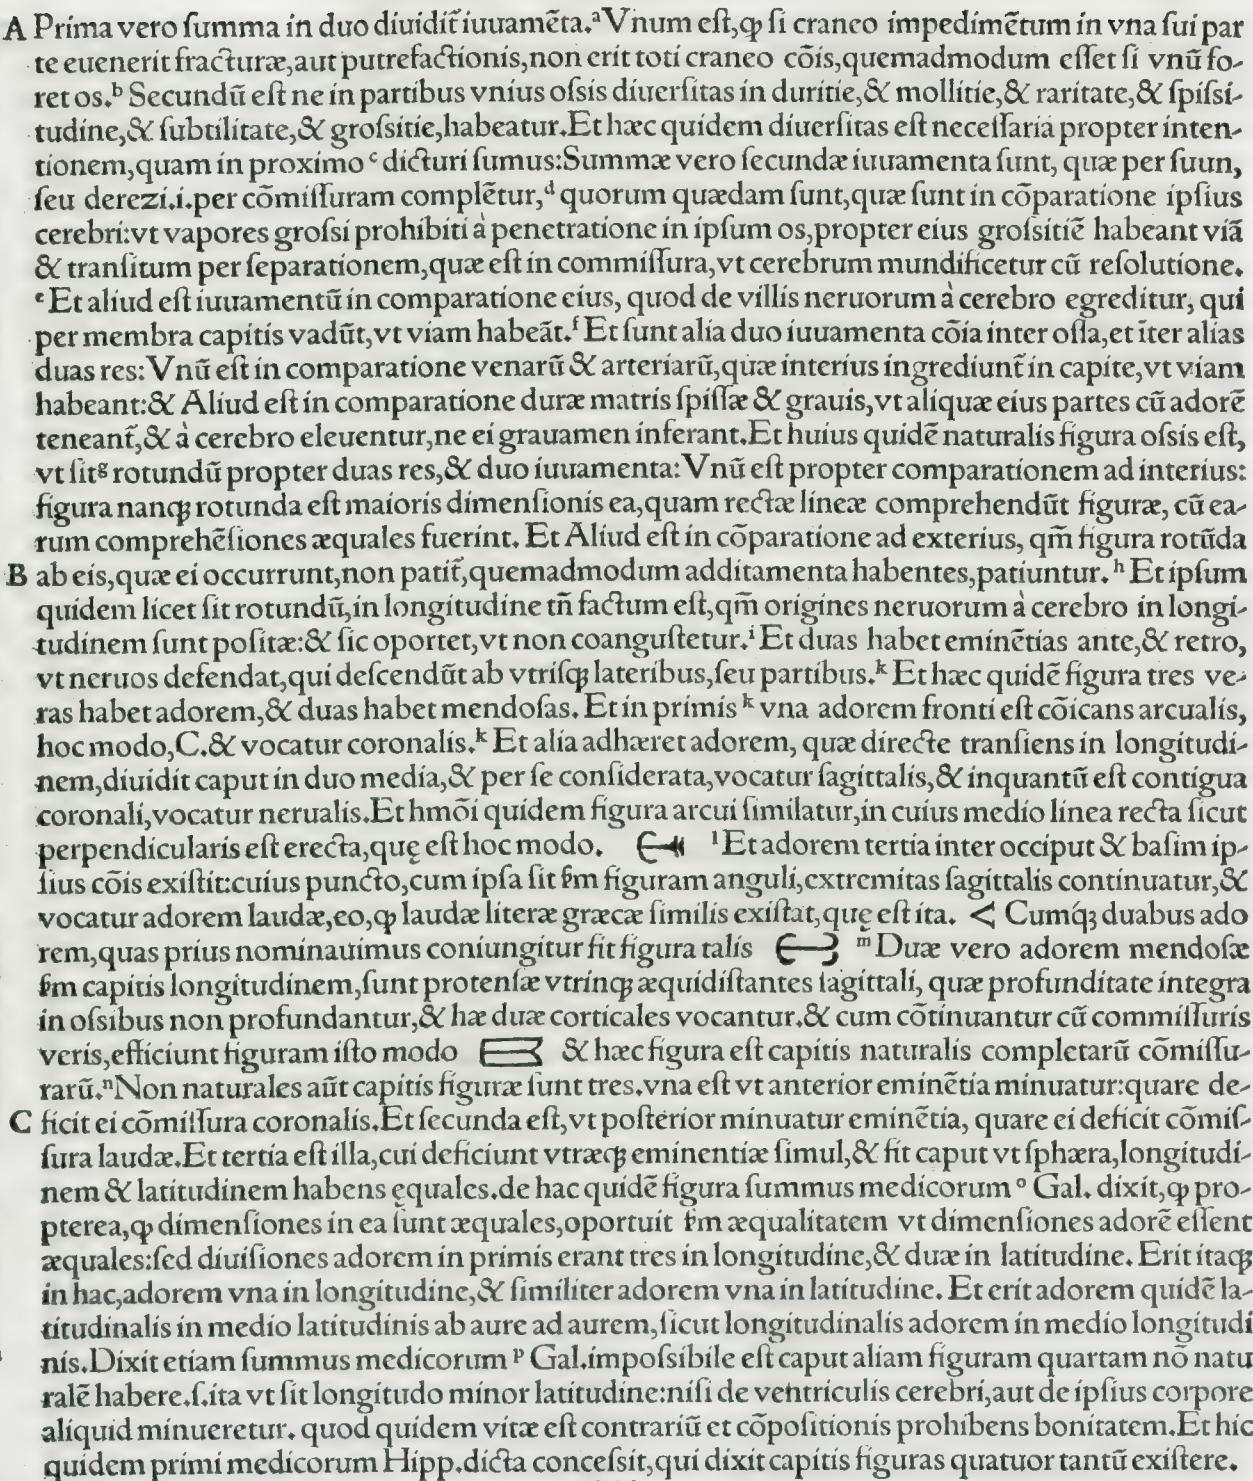 A Prima vero ſumma in duo diuidit̃ iuuamẽta.ᵃ Vnum eſt, ꝙ ſi craneo impedimẽtum in vna ſui par
te euenerit fracturæ, aut putrefactionis, non erit toti craneo cõis, quemadmodum eſſet ſi vnũ fo-
ret os.ᵇ Secundũ eſt ne in partibus vnius oſsis diuerſitas in duritie, & mollitie, & raritate, & ſpiſsi-
tudine, & ſubtilitate, & groſsitie, habeatur. Et hæc quidem diuerſitas eſt neceſſaria propter inten-
tionem, quam in proximo ᶜ dicturi ſumus: Summæ vero ſecundæ iuuamenta ſunt, quæ per ſuun,
ſeu derezi.i.per cõmiſſuram complẽtur,ᵈ quorum quædam ſunt, quæ ſunt in cõparatione ipſius
cerebri: vt vapores groſsi prohibiti à penetratione in ipſum os, propter eius groſsitiẽ habeant viã
& tranſitum per ſeparationem, quæ eſt in commiſſura, vt cerebrum mundificetur cũ reſolutione.
ᵉ Et aliud eſt iuuamentũ in comparatione eius, quod de villis neruorum à cerebro egreditur, qui
per membra capitis vadũt, vt viam habeãt.ᶠ Et ſunt alia duo iuuamenta cõia inter oſſa, et ĩter alias
duas res: Vnũ eſt in comparatione venarũ & arteriarũ, quæ interius ingrediunt̃ in capite, vt viam
habeant: & Aliud eſt in comparatione duræ matris ſpiſſæ & grauis, vt aliquæ eius partes cũ adorẽ
teneant̃, & à cerebro eleuentur, ne ei grauamen inferant. Et huius quidẽ naturalis figura oſsis eſt,
vt ſitᵍ rotundũ propter duas res, & duo iuuamenta: Vnũ eſt propter comparationem ad interius:
figura nanqȝ rotunda eſt maioris dimenſionis ea, quam rectæ lineæ comprehendũt figuræ, cũ ea-
rum comprehẽſiones æquales fuerint. Et Aliud eſt in cõparatione ad exterius, qm̃ figura rotũda
B ab eis, quæ ei occurrunt, non patit̃, quemadmodum additamenta habentes, patiuntur.ʰ Et ipſum
quidem licet ſit rotundũ, in longitudine tñ factum eſt, qm̃ origines neruorum à cerebro in longi-
tudinem ſunt poſitæ: & ſic oportet, vt non coanguſtetur.ⁱ Et duas habet eminẽtias ante, & retro,
vt neruos defendat, qui deſcendũt ab vtriſqȝ lateribus, ſeu partibus.ᵏ Et hæc quidẽ figura tres ve-
ras habet adorem, & duas habet mendoſas. Et in primis ᵏ vna adorem fronti eſt cõicans arcualis,
hoc modo, C. & vocatur coronalis.ᵏ Et alia adhæret adorem, quæ directe tranſiens in longitudi-
nem, diuidit caput in duo media, & per ſe conſiderata, vocatur ſagittalis, & inquantũ eſt contigua
coronali, vocatur nerualis. Et hmõi quidem figura arcui ſimilatur, in cuius medio linea recta ſicut
perpendicularis eſt erecta, quę eſt hoc modo. ˡ Et adorem tertia inter occiput & baſim ip-
ſius cõis exiſtit: cuius puncto, cum ipſa ſit ẜm figuram anguli, extremitas ſagittalis continuatur, &
vocatur adorem laudæ, eo, ꝙ laudæ literæ græcæ ſimilis exiſtat, quę eſt ita. < Cumq́ȝ duabus ado
rem, quas prius nominauimus coniungitur fit figura talis ᵐ Duæ vero adorem mendoſæ
ẜm capitis longitudinem, ſunt protenſæ vtrinqȝ æquidiſtantes ſagittali, quæ profunditate integra
in oſsibus non profundantur, & hæ duæ corticales vocantur. & cum cõtinuantur cũ commiſſuris
veris, efficiunt figuram iſto modo & hæc figura eſt capitis naturalis completarũ cõmiſſu-
rarũ.ⁿ Non naturales aũt capitis figuræ ſunt tres. vna eſt vt anterior eminẽtia minuatur: quare de-
C ficit ei cõmiſſura coronalis. Et ſecunda eſt, vt poſterior minuatur eminẽtia, quare ei deficit cõmiſ-
ſura laudæ. Et tertia eſt illa, cui deficiunt vtræqȝ eminentiæ ſimul, & fit caput vt ſphæra, longitudi-
nem & latitudinem habens ęquales. de hac quidẽ figura ſummus medicorum ᵒ Gal. dixit, ꝙ pro-
pterea, ꝙ dimenſiones in ea ſunt æquales, oportuit ẜm æqualitatem vt dimenſiones adorẽ eſſent
æquales: ſed diuiſiones adorem in primis erant tres in longitudine, & duæ in latitudine. Erit itaqȝ
in hac, adorem vna in longitudine, & ſimiliter adorem vna in latitudine. Et erit adorem quidẽ la-
titudinalis in medio latitudinis ab aure ad aurem, ſicut longitudinalis adorem in medio longitudi
nis. Dixit etiam ſummus medicorum ᵖ Gal. impoſsibile eſt caput aliam figuram quartam nõ natu
ralẽ habere. ſ. ita vt ſit longitudo minor latitudine: niſi de ventriculis cerebri, aut de ipſius corpore
aliquid minueretur. quod quidem vitæ eſt contrariũ et cõpoſitionis prohibens bonitatem. Et hic
quidem primi medicorum Hipp. dicta conceſsit, qui dixit capitis figuras quatuor tantũ exiſtere.